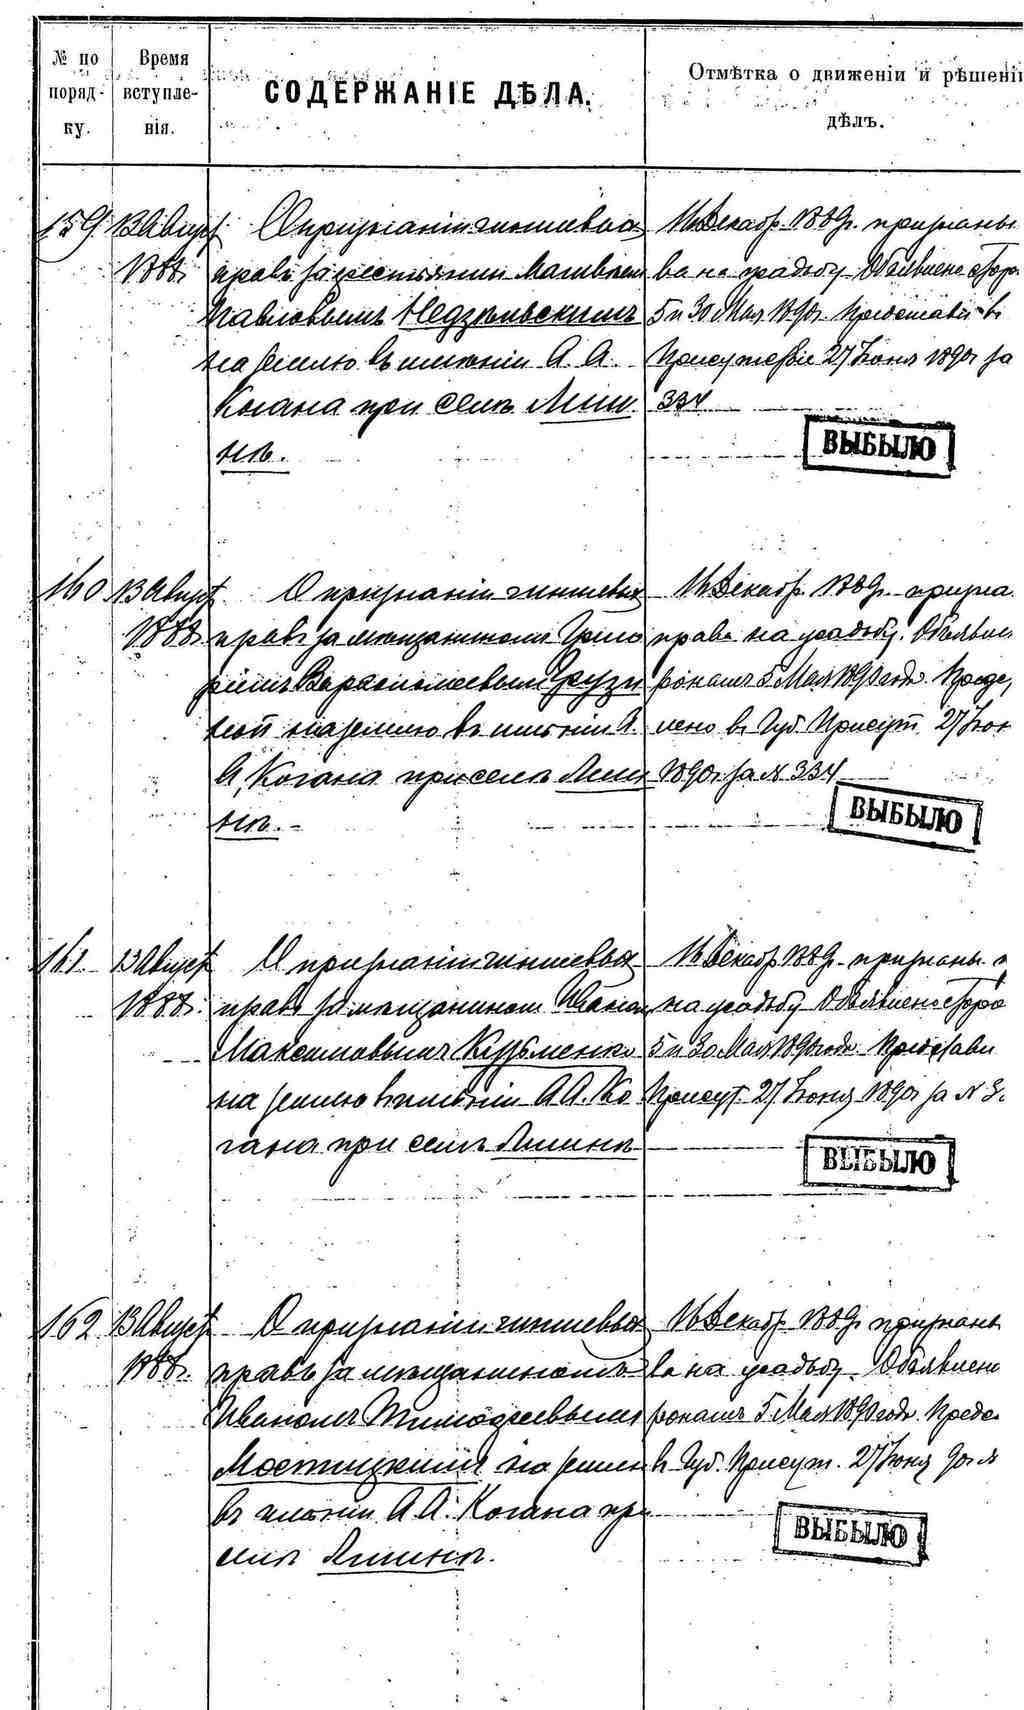 № по поряд-ку.
Время вступле-нія.
СОДЕРЖАНІЕ ДѢЛА.
Отмѣтка о движеніи и рѣшені
дѣлъ.
159. 13 Август 1888.
О признаніи чиншевых
правъ за
Павловымъ Недзѣльскимъ
на землю въ имѣніи А. А.
Когана при селѣ Ляши
нѣ.
16 Декабр. 1889 г. признаны
ва на усадьбу. Объявлено Стор
5 и 30 Мая 1890 г. Представ в
Присутствіе 27 Іюня 1890 г за
334
ВЫБЫЛО
160 13 Август 1888.
О признаніи чиншевых
правъ за мѣщаниномъ Григо
ріемъ Варѳоломеевымъ
на землю въ имѣніи А.
А. Когана при селѣ Ляши
нѣ.
16 Декабр. 1889 г. призна
права на усадьбу. Объявлен
ронамъ 5 Мая 1890 года. Предс
лено въ Губ. Присут. 27 Іюн
1890 г за № 334
ВЫБЫЛО
161. 13 Август 1888.
О признаніи чиншевых
правъ за мѣщаниномъ Иваном
Максимовымъ Кузьменко
на землю въ имѣніи А. А. Ко
гана при селѣ Ляшинѣ
16 Декабр 1889 г. признаны п
на усадьбу Объявлено Сторо
5 и 30 Мая 1890 года. Представ
Присут 27 Іюня 1890 г за № 3
ВЫБЫЛО
162 13 Август 1888 г.
О признаніи чиншевых
правъ за мѣщаниномъ
Иваномъ Тимоѳеевымъ
Мостицкимъ на землю
въ имѣніи А. А. Когана при
селѣ Ляшинѣ.
16 Декабр 1889 г. признан
ва на усадьбу. Объявлено
ронамъ 5 Мая 1890 года. Предс
въ Губ. Присут. 27 Іюня
ВЫБЫЛО